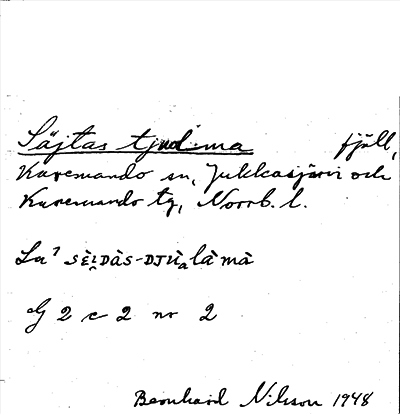 Säjtas tjudima fjäll,
Karesuando sn, Jukkasjärvi och
Karesuando tg, Norrb. l.
La⁷ sèi̯Dàs-DJU̇ₐlàmà
G 2 c 2 nr 2
Bernhard Nilsson 1948